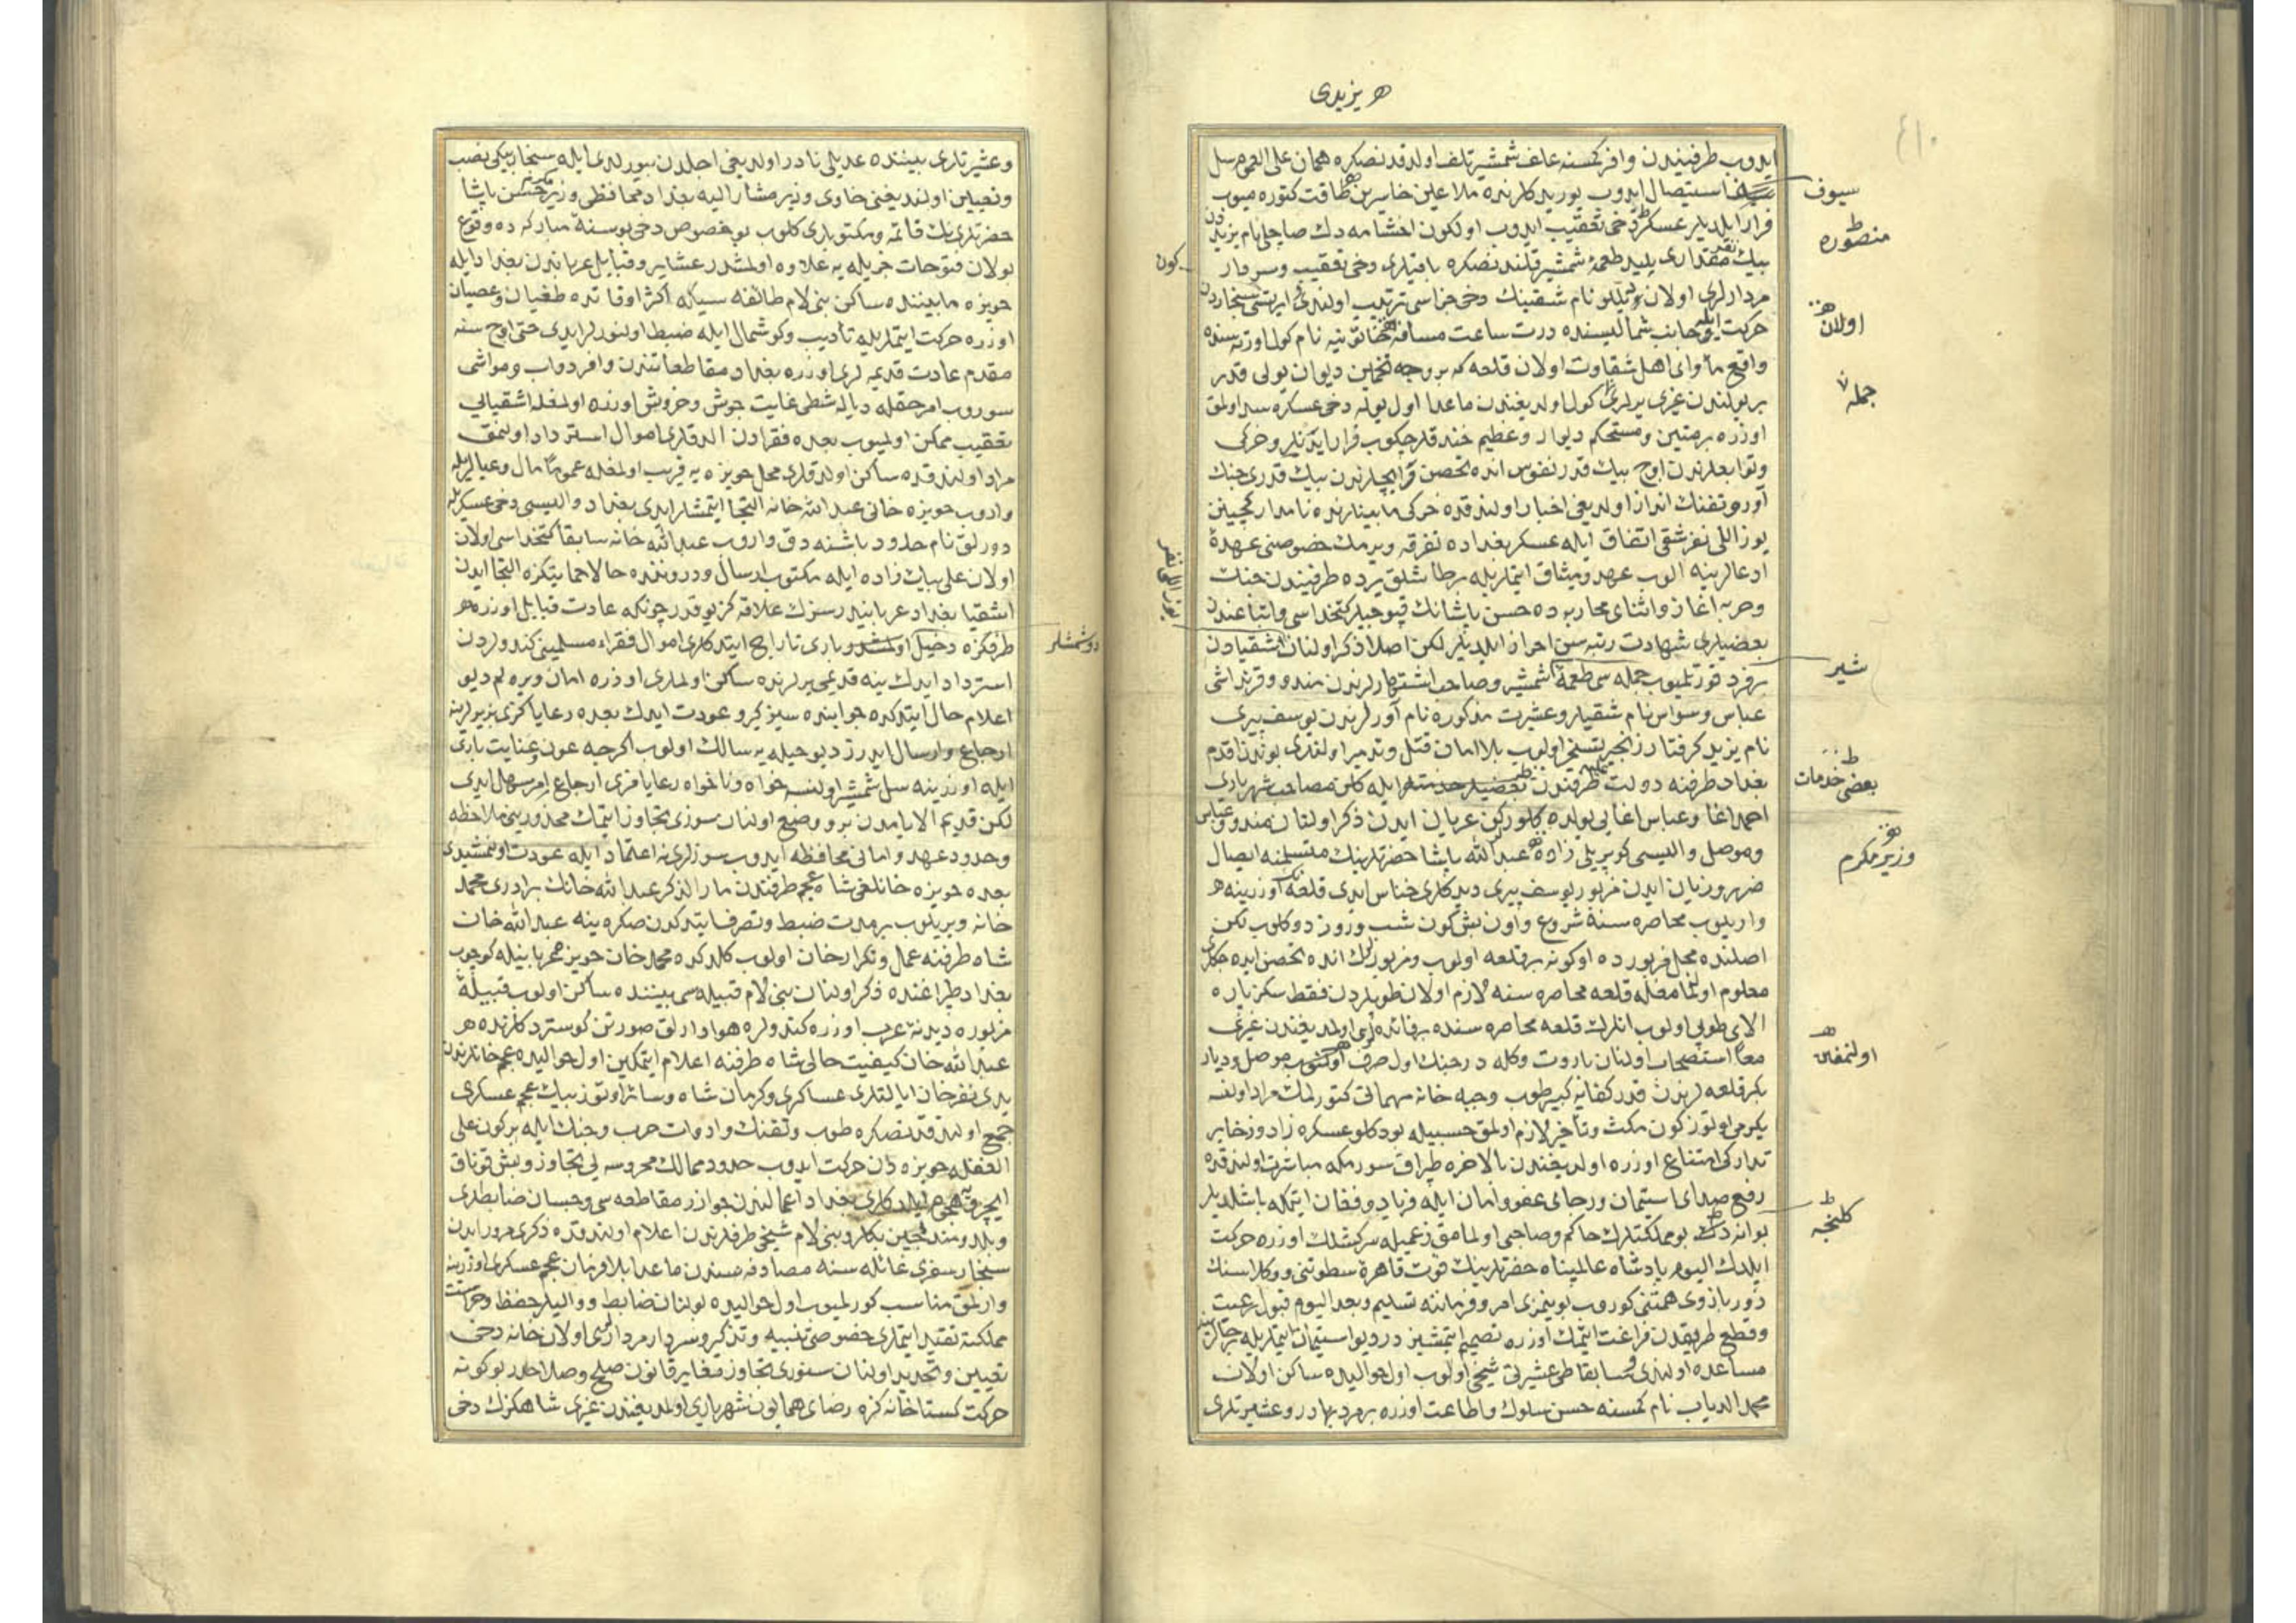 هر یزیدی
٤١٠
ایدوب طرفیندن وافر کمسنه علف شمشیر تلف اولدقدنصکره همان علی العموم سل
استیصال ایدوب یوریدکلرنده ملاعین خاسرین طاقت کتوره میوب
سیوف
منصوره
فرار ایلدیلر عسکر دخی تعقیب ایدوب اولکون اخشامه دك صاچلی نام یزیدیدن
بیك نفر مقداری پلید طعمۀ شمشیر قلندنصکره باقیلری دخی تعقیب وسردار
کون
مردارلری اولان نام شقینك دخی جزاسی ترتیب اولندی ایرتسی سنجاردن
حرکت ایله جانب شمالیسنده درت ساعت مسافه خاتونیه نام کول اورته سنده
اولان
واقع مأوای اهل شقاوت اولان قلعه که بر وجه تخمین دیوان یولی قدر
بر یولندن غیری یرلری کول اولدیغندن ماعدا اول یوله دخی عسکره سد اولمق
جمله
اوزره بر متین ومستحکم دیوار وعظیم خندقلر چکوب قرار ایدنلر وخرکی
وتوابعلرندن اوچ بیك قدر نفوس انده تحصن وایچلرندن بیك قدری جنك
آور وتفنك انداز اولدیغی اخبار اولندقده خرکی مابینلرنده نامدار کچینن
یوز اللی نفر شقی اتفاق ایله عسکر بغداده تفرقه ویرمك خصوصنی عهدۀ
ادعالرینه الوب عهد ومیثاق ایتملریله بر طاشلق یرده طرفیندن جنك
وحربه اغاز واثنای محاربه ده حسن پاشانك قپوجیلر کتخداسی واتباعندن
بعضیلری شهادت رتبه سن احراز ایلدیلر لکن اصلا ذکر اولنان اشقیادن
بر فرد قورتلیوب جمله سی طعمۀ شمشیر وصاحب اشتهارلرندن مندو وقرنداشی
شیر
عباس وسواس نام شقیلر وعشیرت مذکوره نام آورلرندن یوسف بیری
نام یزید کرفتار زنجیر تسخیر اولوب بلا امان قتل وتدمیر اولندی بوندن اقدم
بغداد طرفنه دولت علیه طرفندن ایله کلن مصاحب شهریاری
بعض خدمات
احمد اغا وعباس اغایی یولده کلورکن عریان ایدن ذکر اولنان مندو وعباس
وموصل والیسی کوپریلی زاده عبدالله پاشا حضرتلرینك متسلمنه ایصال
وزیر مکرم
ضرر وزیان ایدن مزبور یوسف بیری دیدکلری خناس ایدی قلعه نك اوزرینه
واریلوب محاصره سنه شروع واون بش کون شب وروز دوکلوب لکن
اصلنده محل مزبورده اوکونه بر قلعه اولوب ومزبورلرك انده تحصن ایده جکلری
معلوم اولمامغله قلعه محاصره سنه لازم اولان طوپلردن فقط سکز پاره
الای طوپی اولوب انلرك قلعه محاصره سنده بر فائده لری اولمدیغندن غیری
معا استصحاب اولنان باروت وکله در جنك اول صرف اولنوب موصل ودیار
اولنمغین
بکر قلعه لرندن قدر کفایه کبیر طوپ وجبه خانه مهماتی کتورلمك مراد اولنسه
یکرمی اوتوز کون مکث وتأخیر لازم اولمق حسبیله بودکلو عسکره زاد وذخایر
تدارکی امتناع اوزره اولدیغندن بالاخره طپراق سورمکه مباشرت اولندقده
رفع صدای استیمان ورجای عفو وامان ایله فریاد وفغان ایتمکه باشلدیلر
کلنجه
بوانه دك بو مملکتلرك حاکم وصاحبی اولمامق زعمیله سرکشلك اوزره حرکت
ایلدك الیوم پادشاه عالمپناه حضرتلرینك قوت قاهرۀ سطوتنی ووکلاسنك
زور بازوی همتنی کوروب بوینمزی امر وفرمانه تسلیم وبعد الیوم قبول رعیت
وقطع طریقدن فراغت ایتمك اوزره تصمیم ایتمشیز دیو استیمان ایتملریله رجالرینه
مساعده اولندی وسابقا طی عشیرتی شیخی اولوب اول حوالیده ساکن اولان
محمد الدیاب نام کمسنه حسن سلوك واطاعت اوزره بر مرد بهادر وعشیرتلری
وعشیرتلری بیننده عدیلی نادر اولدیغی اجلدن بیورلدی ایله سنجار بیکی نصب
وتعیین اولندیغنی حاوی وزیر مشار الیه بغداد محافظی وزیر مکرم حسن پاشا
حضرتلری نك قائمه ومکتوبلری کلوب بو خصوص دخی بو سنۀ مبارکه ده وقوع
بولان فتوحات جزیله یه علاوه اولمشدر عشایر وقبایل عرباندن بغداد ایله
حویزه مابیننده ساکن بنی لام طائفه سیکه اکثر اوقاتده طغیان وعصیان
اوزره حرکت ایتملریله تأدیب وکوشمال ایله ضبط اولنورلر ایدی حتی اوچ سنه
مقدم عادت قدیمه لری اوزره بغداد مقاطعاتندن وافر دواب ومواشی
سوروب امر حقله دیاله شطی غایت جوش وخروش اوزره اولمغله اشقیایی
تعقیب ممکن اولمیوب بعده فقرادن الدقلری اموال استرداد اولنمق
مراد اولندقده ساکن اولدقلری محل حویزه یه قریب اولمغله عموما مال وعیالریله
واروب حویزه خانی عبدالله خانه التجا ایتمشلر ایدی بغداد والیسی دخی عسکریله
دورلق نام حدود باشنه دق واروب عبدالله خانه سابقا کتخداسی اولان
اولان علی بیك زاده ایله مکتوب ارسال ودروننده حالا حمایتکزه التجا ایدن
اشقیا بغداد عرباندندر سزك علاقه کز یوقدر چونکه عادت قبایل اوزره
طرفکزه دخیل وباری تاراج ایتدکلری اموال فقراء مسلمینی کندولردن
دوشمشلر
استرداد ایدك ینه قدیمی یرلرنده ساکن اولملری اوزره امان ویره لم دیو
اعلام حال ایتدکده جوابنده سیز کیرو عودت ایدك بعده رعایاکزی یرلو یرینه
ارجاع وارسال ایدرز دیو حیله یه سالك اولوب اکرچه عون وعنایت باری
ایله اوزرینه سل شمشیر اولنسه خواه وناخواه رعایامزی ارجاع امر سهل ایدی
لکن قدیم الایامدن برو وضع اولنان سوزی تجاوز ایتمك محذورینی ملاحظه
وحدود عهد وامانی محافظه ایدوب سوزلرینه اعتماد ایله عودت اولنمشیدی
بعده حویزه خانلغی شاه عجم طرفندن مار الذکر عبدالله خانك برادری محمد
خانه ویریلوب بر مدت ضبط وتصرف ایتدکدن صکره ینه عبدالله خان
شاه طرفنه عمل وتکرار خان اولوب کلدکده محمد خان حویزه عربانیله کوچوب
بغداد طپراغنده ذکر اولنان بنی لام قبیله سی بیننده ساکن اولوب قبیلۀ
مزبوره دیدنۀ عرب اوزره کندولره هوادارلق صورتن کوستردکلرنده
عبدالله خان کیفیت حالی شاه طرفنه اعلام ایتمکین اول حوالیده عجم خانلرندن
یدی نفر خان ایالتلری عساکری وکرمان شاه وسائر اوتوز بیك عجم عسکری
جمع اولندقدنصکره طوپ وتفنك وادوات حرب وجنك ایله بر کون علی
الغفله حویزه دن حرکت ایدوب حدود ممالك محروسه یی تجاوز وبش قوناق
ایچرویه هجوم ایلدکلری بغداد اعمالندن جوازر مقاطعه سی وجسان ضابطلری
وبلد ومندلجین بکلری وبنی لام شیخی طرفلرندن اعلام اولندقده ذکری مرور ایدن
سنجار سفری غائله سنه مصادفه سندن ماعدا بلا فرمان عجم عسکری اوزرینه
وارلمق مناسب کورلمیوب اول حوالیده بولنان ضابط ووالیلر حفظ وحراست
مملکته تقید ایتملری خصوصی تنبیه وتذکیر وسردار مردارلری اولان خانه دخی
تعیین وتحدید اولنان سنوری تجاوز مغایر قانون صلح وصلاحدر بو کونه
حرکت کستاخانه کزه رضای همایون شهریاری اولمدیغندن غیری شاهکزك دخی